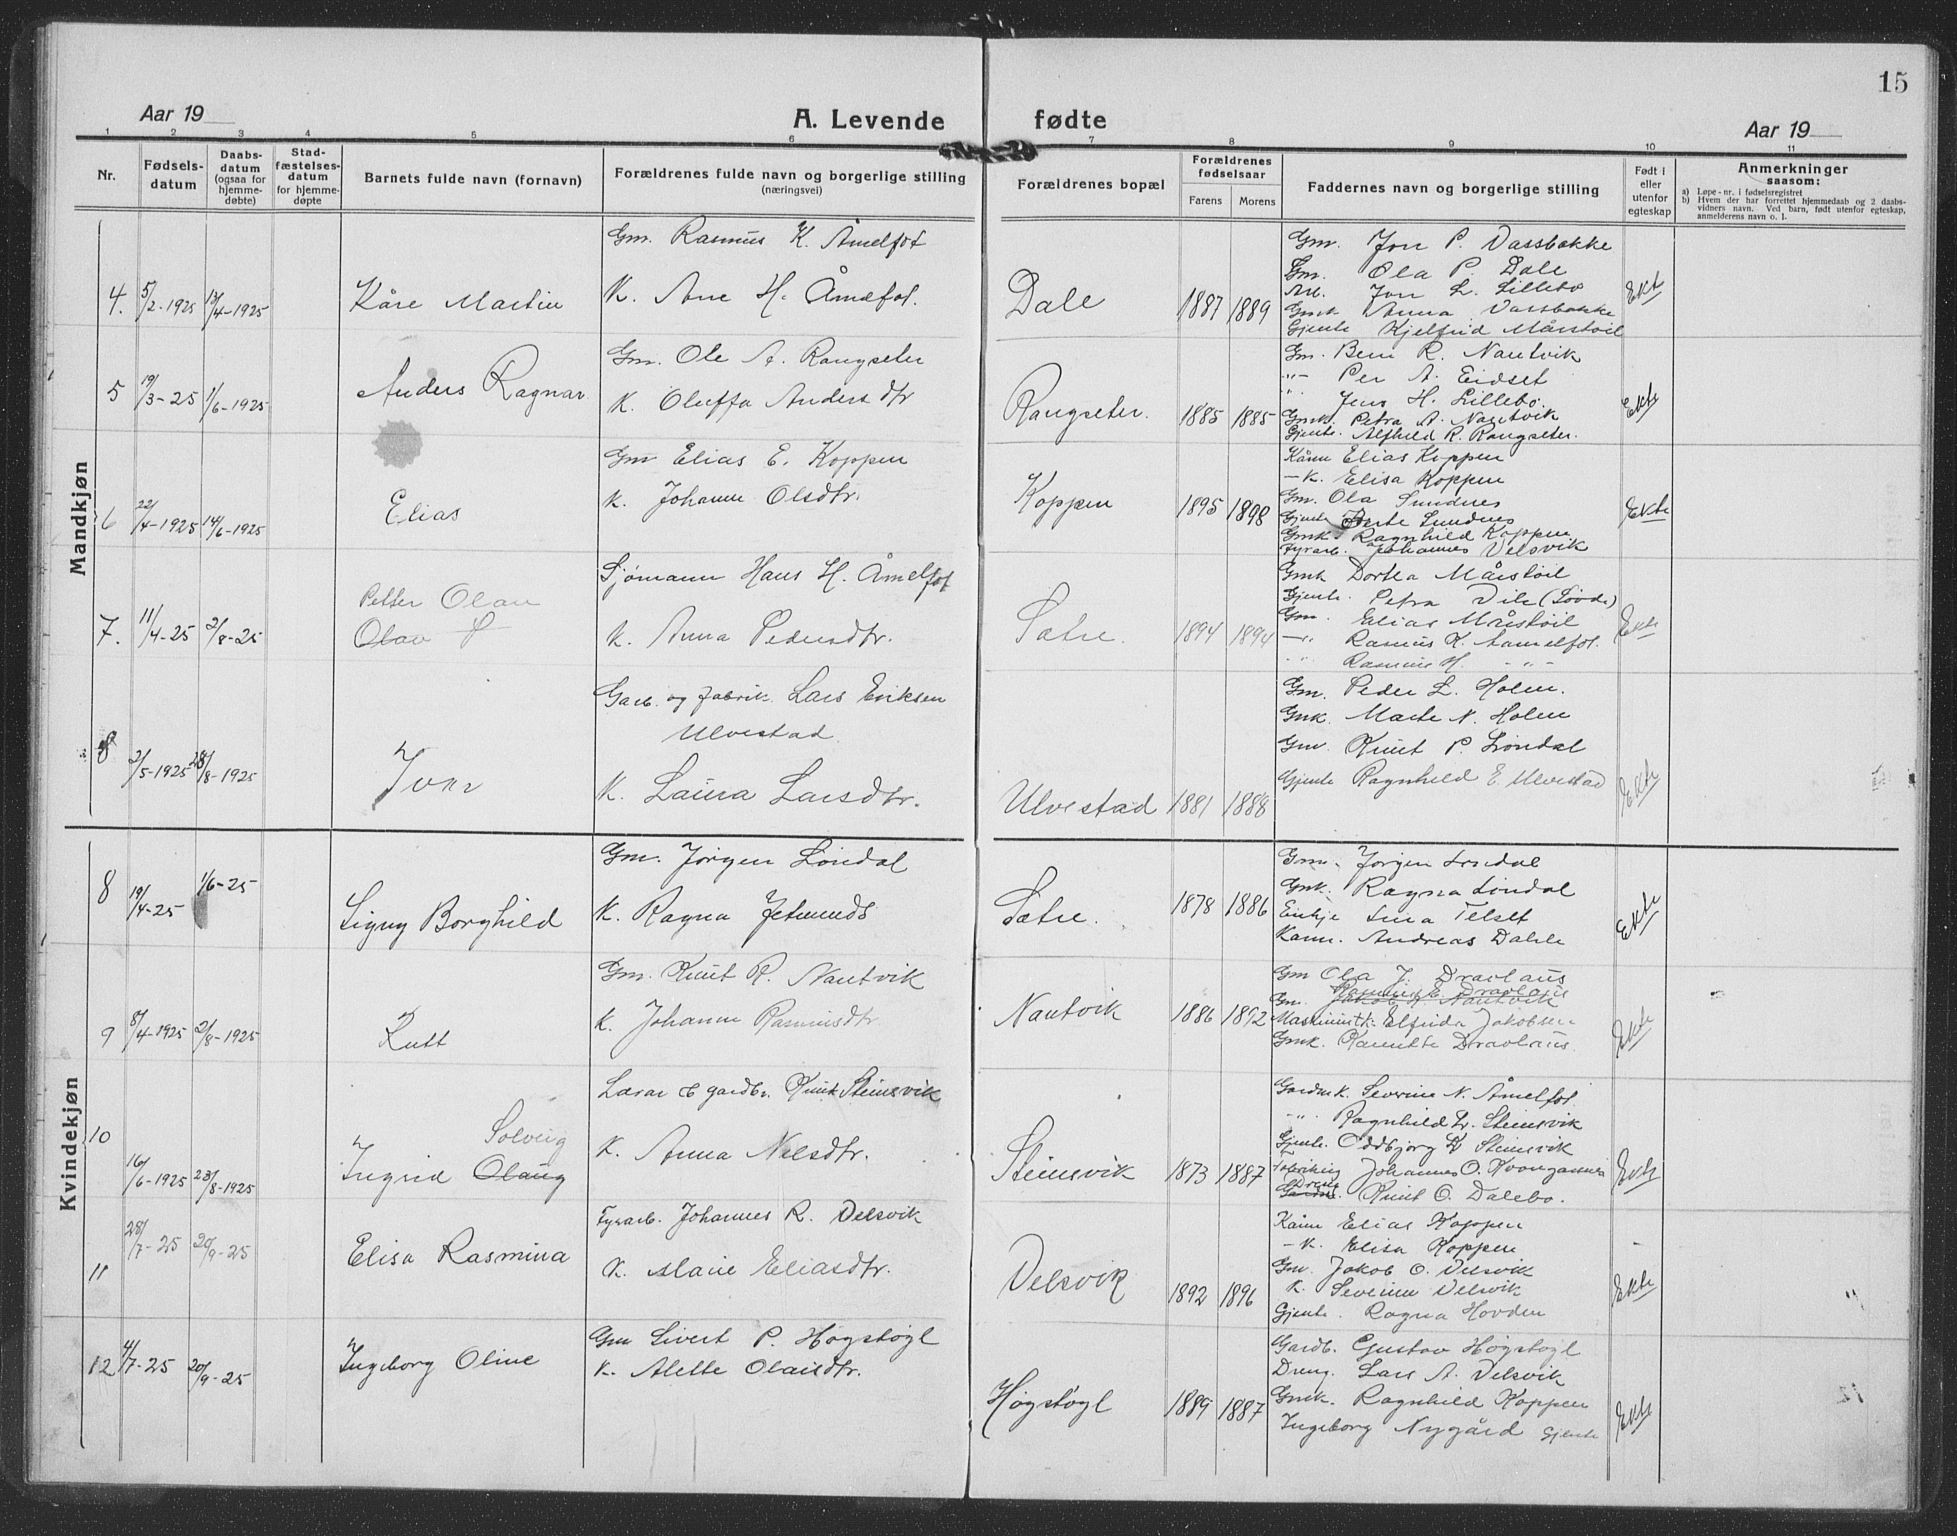 15
Aar 19
A. Levende fødte
Aar 19
1 2 3 4 5 6 7 8 9 10 11
Nr.
Fødsels-
datum
Daabs-
datum
(ogsaa for
hjemme-
døbte)
Stad-
fæstelses-
datum
for hjemme-
døpte
Barnets fulde navn (fornavn)
Forældrenes fulde navn og borgerlige stilling
(næringsvei)
Forældrenes bopæl
Forældrenes
fødselsaar
Farens Morens
Faddernes navn og borgerlige stilling
Født i
eller
utenfor
egteskap
Anmerkninger
saasom:
a) Løpe-nr. i fødselsregistret
b) Hvem der har forrettet hjemmedaab og 2 daabs-
vidners navn. Ved barn, født utenfor egteskap,
anmelderens navn o. l.
Mandkjøn
4. 5/2-1925 13/4-1925
Kåre Martin
Gm. Rasmus K. Åmelfot
K. Ane H. Åmelfot.
Dale
1887 1889
Gm. Jon P. Vassbakke
Gm. Ola P. Dale
Arb. Jon L. Lillebø
Gmk Anna Vassbakke
Gjente Kjelfrid Mårstøil
Ekt
5 19/3-25 1/6-1925
Anders Ragnar
Gm. Ole A. Rangseter
K. Oluffa Andersdtr
Rangseter.
1885 1885
Gm. Bern R. Nautvik
-"- Per A. Eidset
" Jens H. Lillebø.
Gmk. Petra A. Nautvik
Gjente. Alfhild R. Rangseter.
Ekte
6 22/4-1925 14/6-1925
Elias
Gm Elias E. Koppen
K. Johanne Olsdtr.
Koppen
1895 1898
Kårm Elias Koppen
-K. Elisa Koppen
Gm. Ola Sundnes
Gjente Berte Sundnes
Gmk. Ragnhild Koppen
Fyrarb. Johannes Velsvik
Ekte
7. 11/4-25 2/8-25
Petter Olav
Olav P
Sjømann Hans H. Åmelfot
K. Anna Pedersdtr.
Sætre.
1894 1894
Gmk Dortea Mårstøil
Gjente. Petra Vik (Søvde)
Gm. Elias Mårstøil
-"- Rasmus K. Aamelfot.
" Rasmus H. -"-
Ekte
8 2/5-1925 23/8-1925
Ivar
Garb. og fabrik. Lars Eriksen
Ulvestad
K. Laura Larsdtr.
Ulvestad
1881 1888
Gm. Peder L. Holen.
Gmk. Marte N. Holen
Gm. Knut P. Løndal
Gjente Ragnhild E. Ulvestad
Ekte
Kvindekjøn
8 19/4-25 1/6-25
Signy Borghild
Gm. Jørgen Løndal
K. Ragna Jetmunds
Sætre.
1878 1886
Gm. Jørgen Løndal
Gmk. Ragna Løndal
Enkje Lina Telset
Kårm. Andreas Dahle
Ekte
9 8/4-1925 2/8-1925
Rutt
Gm. Knut R. Nautvik
K. Johanne Rasmusdtr
Nautvik
1886 1892
Gm Ola J. Dravlaus
Rasmus E. Dravlaus
Gm. Jakob K Nautvik
Maskinistk. Elfrida Jakobsen
Gmk. Kanutte Dravlaus.
Ekte
10 16/6-1925 23/8-1925
Solveig
Ingrid Olaug
Lærar & gardbr. Knut Steinsvik
K. Anna Nilsdtr.
Steinsvik
1873 1887
Gardmk. Severine N. Åmelfot
-"- Ragnhild L. Steinsvik
Gjente. Oddbjørg K Steinsvik
Johannes O. Krongannes
Dreng Knut O. Dalebø.
Ekte
11 28/7-25 20/9-25
Elisa Rasmina
Fyrarb. Johannes R. Velsvik
K. Marie Eliasdtr.
Velsvik
1892 1896
Kårm Elias Koppen
-K. Elisa Koppen
Gm. Jakob O. Velsvik
K. Severine Velsvik
Gjente. Ragna Hovden
Ekte
12 4/7-25 20/9-25
Ingeborg Oline
Gm Sivert P. Høgstøgl
K. Alette Olaisdtr.
Høgstøgl
1889 1887
Gardb. Gustav Høgstøgl
Dreng. Lars A. Velsvik
Gmk. Ragnhild Koppen
Ingeborg Nygård Gjente
Ekte